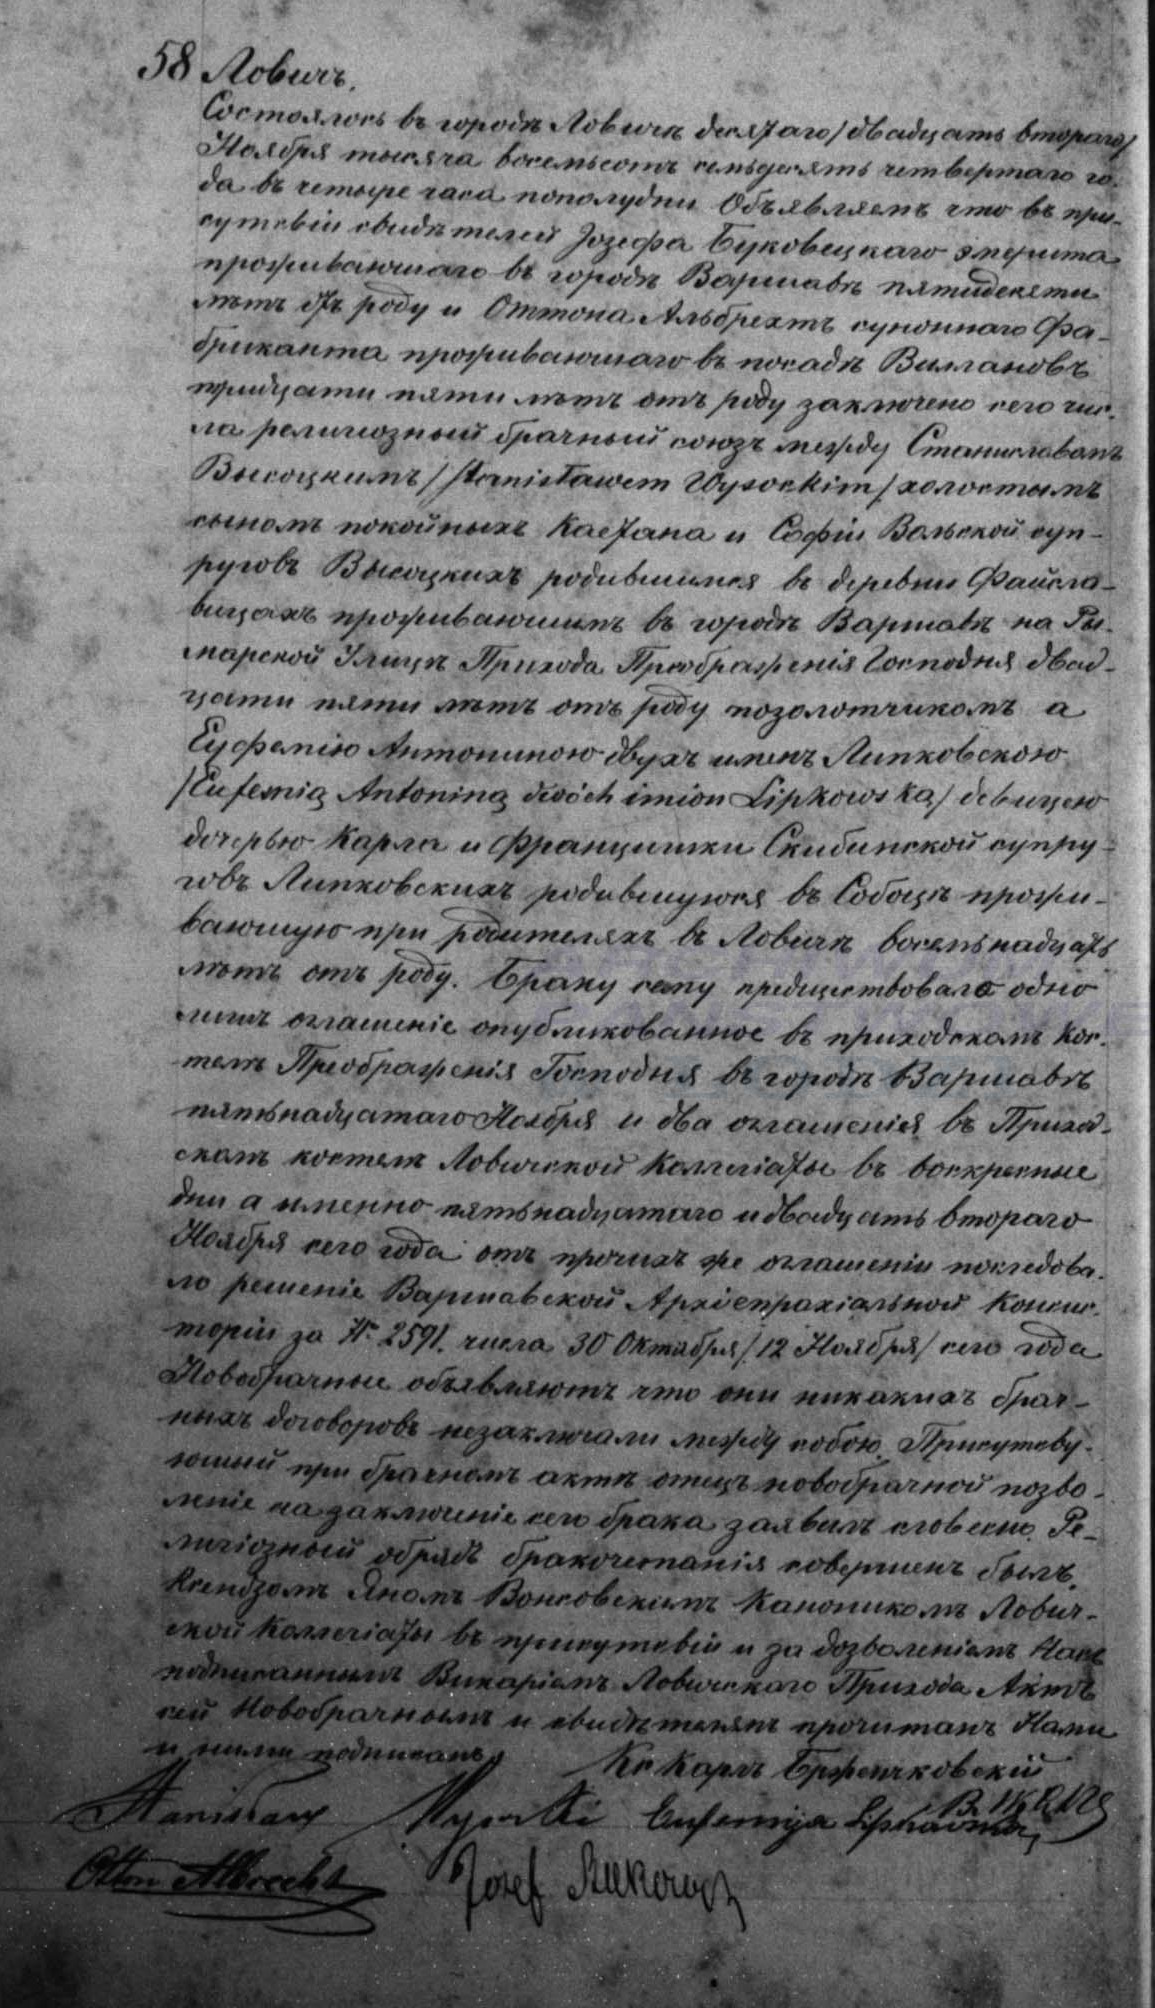 58 Ловичъ.
Состоялось въ городѣ Ловичѣ десятаго/двадцать втораго/
Ноября тысяча восемьсотъ семьдесятъ четвертаго го-
да въ четыре часа пополудни Объявляемъ что въ при-
сутствіи свидѣтелей Іозефа Буковецкаго эмерита
проживающаго въ городѣ Варшавѣ пятидесяти
лѣтъ отъ роду и Оттона Альбрехтъ суконнаго Фа-
бриканта проживающаго въ посадѣ Виллановъ
тридцати пяти лѣтъ отъ роду заключено сего чис-
ла религіозный брачный союзъ между Станиславомъ
Высоцкимъ /Stanisławem Wysockim/ холостымъ
сыномъ покойныхъ Каетана и Софіи Вольской суп-
руговъ Высоцкихъ родившимся въ деревни Файсла-
вицахъ проживающимъ въ городѣ Варшавѣ на Ры-
марской Улицѣ Прихода Преображенія Господня двад-
цати пяти лѣтъ отъ роду позолотчикомъ а
Еуфемію Антониною двухъ именъ Липковскою
/Eufemią Antoniną dwóch imion Lipkowską/ девицею
дочерью Карла и Францишки Скибинской супру-
говъ Липковскихъ родившуюся въ Собоцѣ прожи-
вающую при родителяхъ въ Ловичѣ восемьнадцать
лѣтъ отъ роду. Браку сему предшествовало одно
лишъ оглашеніе опубликованное въ приходскомъ Кос-
телѣ Преображенія Господня въ городѣ Варшавѣ
пятьнадцатаго Ноября и два оглашенія въ Приход-
скомъ костелѣ Ловичской Коллегіаты въ воскресные
дни а именно пятьнадцатаго и двадцать втораго
Ноября сего года отъ прочихъ же оглашеніи последова-
ло решеніе Варшавской Архіепрахіальной Консис-
торіи за № 2591. числа 30 Октября/12 Ноября/ сего года
Новобрачные объявляютъ что они никакихъ брач-
ныхъ договоровъ незаключали между собою. Присутству-
ющій при брачномъ актѣ отецъ новобрачной позво-
леніе на заключеніе сего брака заявилъ словесно. Ре-
лигіозный обрядъ бракочетанія совершенъ былъ
Ксендзомъ Яномъ Вонсовскимъ Каноникомъ Лович-
ской Коллегіаты въ присутствіи и за дозволеніемъ Насъ
подписаннымъ Викаріемъ Ловичскаго Прихода Актъ
сей Новобрачнымъ и свидѣтелямъ прочитанъ Нами
и ними подписанъ Кс Карлъ Бржечковскій
Stanisław Wysocki Eufemija Lipkowska
Otton Albrecht Józef